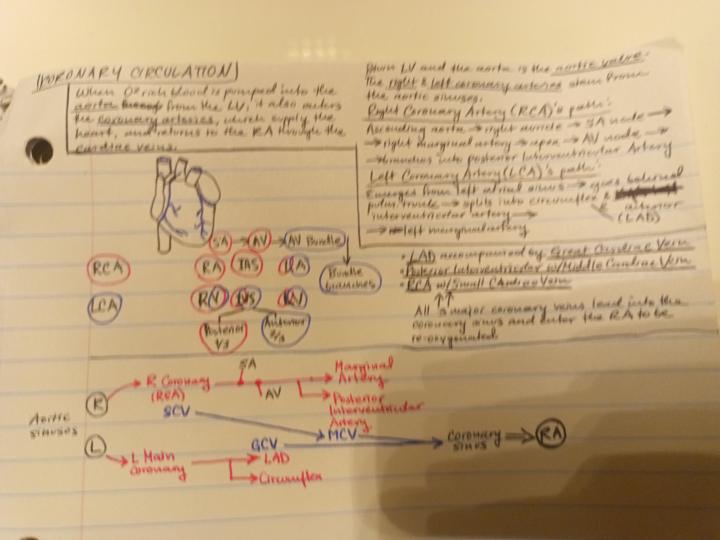 CORONARY CIRCULATION
When O2 rich blood is pumped into the
aorta from the LV, it also enters
the coronary arteries, which supply the
heart, and returns to the RA through the
cardiac veins.
LV and the aorta is the aortic valve.
The right & left coronary arteries stem from
the aortic sinuses.
Right Coronary Artery (RCA)'s path:
Ascending aorta → right auricle → SA node →
→ right marginal artery → apex → AV node →
→ branches into posterior interventricular Artery
Left Coronary Artery (LCA)'s path:
Emerges from left sinus → goes behind
trunk → splits into circumflex &
anterior
interventricular artery →
(LAD)
→ left marginal artery
SA → AV → AV Bundle
Bundle
branches
RCA RA IAS LA
LCA RV IVS LV
Posterior
1/3
Anterior
2/3
• LAD accompanied by Great Cardiac Vein
• Posterior Interventricular w/ Middle Cardiac Vein
• RCA w/ Small Cardiac Vein
All 3 major coronary veins lead into the
coronary sinus and enter the RA to be
re-oxygenated
Aortic
sinuses
R
R. Coronary
(RCA)
SA
AV
Marginal
Artery
Posterior
Interventricular
Artery
SCV
MCV
GCV
coronary
sinus
RA
L
L Main
coronary
LAD
Circumflex